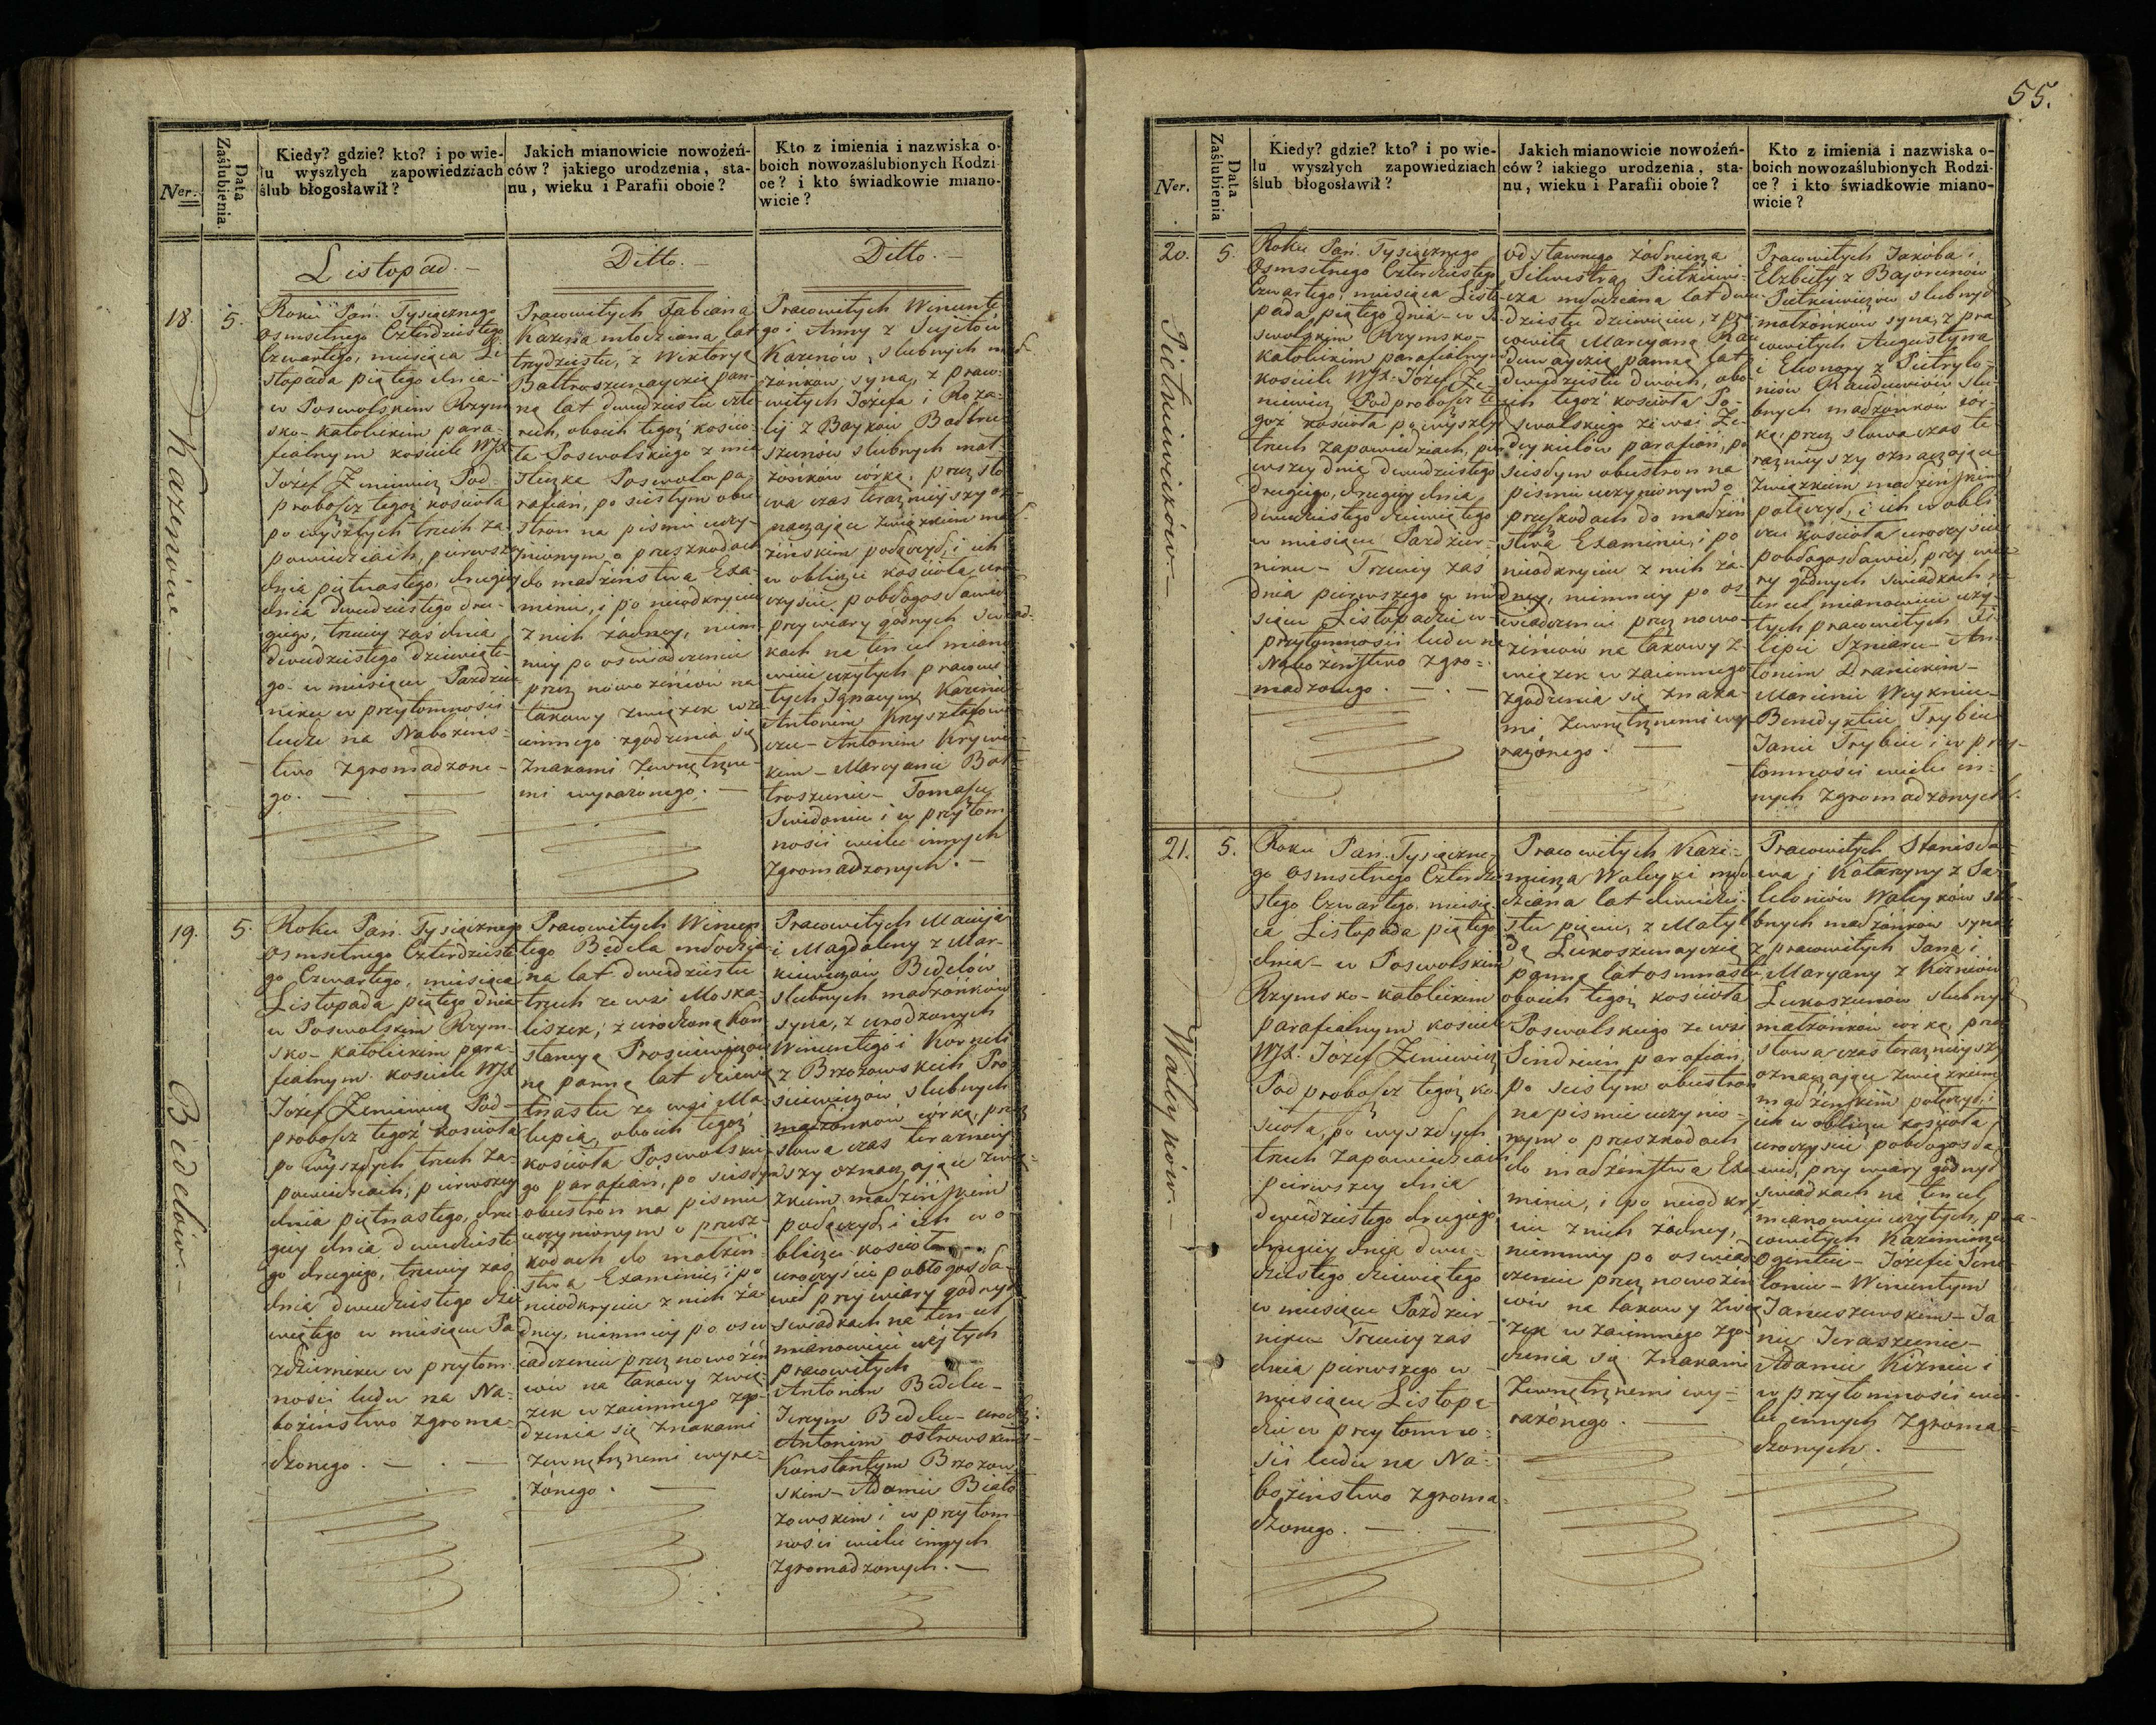 55.
Ner.
Data Zaślubienia
Kiedy? gdzie? kto? i po wie-
lu wyszłych zapowiedziach
ślub błogosławił?
Jakich mianowicie nowożeń-
ców? jakiego urodzenia, sta-
nu, wieku i Parafii oboie?
Kto z imienia i nazwiska o-
boich nowozaślubionych Rodzi-
ce? i kto świadkowie miano-
wicie?
Listopad. -
Ditto. -
Ditto. -
18.
5.
Kazenów. -
Roku Pań. Tysiącznego
osmsetnego Czterdziestego
Czwartego, miesiąca Li-
stopada piątego dnia -
w Poswolskim Rzym
sko-katolickim para-
fialnym kościele WJX
Józef Zeniewicz Pod
proboszcz tegoż kościoła
po wyszłych trzech za-
powiedziach, pierwszey
dnia piętnastego, drugiey
dnia dwudziestego dru-
giego, trzeciey zaś dnia
dwudziestego dziewiąte-
go w miesiącu Paździer
niku w przytomności
ludu na Nabożeńs-
two zgromadzone-
go. -
Pracowitych Fabiana
Kazena młodziana lat
trzydziestu, z Wiktoryą
Baltroszunayczią pan-
ną lat dwudziestu czte-
rech, oboich tegoż kościo-
ła Poswolskiego z mia
steczka Poswola pa-
rafian, po scisłym obu
stron na piśmie uczy-
nionym o przeszkodach
do małżeństwa Exa-
minie, i po nieodkryciu
z nich żadney, niem-
niey po oświadczeniu
przez nowożeńców na
takowy związek wza
iemnego zgodzenia się
znakami zewnętrzne-
mi wyrażonego. -
Pracowitych Wincente
go i Anny z
Kazenów, slubnych mał
żonków syna, z praco-
witych Józefa i Roza-
lij z Bayków Baltru-
szunów slubnych mał
żonków córką, przez sło
wa czas teraźnieyszy oz-
naczające związkiem mał
żeńskim połączył, i ich
w obliczu kościoła uro
czyście pobłogosławił
przy wiary godnych świad-
kach na ten cel miano
wicie użytych pracowi
tych Ignacym Kazenie
Antonim Krysztofowi
czu - Antonim Krywi-
kim - Marcyanie Bał
troszunie - Tomaszu
Swidonie i w przytom
ności wielu innych
Zgromadzonych. -
19.
5.
Bedelów. -
Roku Pań. Tysiącznego
osmsetnego Czterdzieste
go Czwartego, miesiąca
Listopada piątego dnia
w Poswolskim Rzym-
sko-katolickim para-
fialnym kościele WJX
Józef Zeniewicz Pod-
proboszcz tegoż kościoła
po wyszłych trzech za-
powiedziach, pierwszey
dnia piętnastego, dru
giey dnia dwudzieste
go drugiego, trzeciey zaś
dnia dwudziestego dzie
wiątego w miesiącu Pa
ździerniku w przytom-
ności ludu na Na-
bożeństwo zgroma-
dzonego. -
Pracowitych Wincen
tego Bedela młodzia-
na lat dwudziestu
trzech ze wsi Moska-
liszek, z urodzoną Kon
stancyą Prosciewiczow
ną panną lat dziewię
tnastu ze wsi Ma-
łupia, oboich tegoż
kościoła Poswolskie-
go parafian, po scisłym
obustron na piśmie
uczynionym o przesz-
kodach do małżeń-
stwa Examinie, i po
nieodkryciu z nich ża-
dney, niemniey po ośw
iadczeniu przez nowożeń
ców na takowy zwią-
zek wzaiemnego zgo-
dzenia się znakami
zewnętrznemi wyra-
żonego. -
Pracowitych Macieja
i Magdaleny z Mar-
kiewiczów Bedelów
slubnych małżonków
syna, z urodzonych
Wincentego i Kornelii
z Brzozowskich Pro-
sciewiczów slubnych
małżonków córką, przez
słowa czas teraźniey-
szy oznaczające zwią-
zkiem małżeńskim
połączył, i ich w o-
bliczu kościoła
uroczyście pobłogosła-
wił przy wiary godnych
swiadkach na ten cel
mianowicie użytych
pracowitych
Antonim Bedelu -
Jerzym Bedelu - urodz:
Antonim Ostrowskim -
Konstantym Brzozow
skim - Adamie Biało
zowskim i w przytom
ności wielu innych
Zgromadzonych. -
Ner.
Data Zaślubienia
Kiedy? gdzie? kto? i po wie-
lu wyszłych zapowiedziach
ślub błogosławił?
Jakich mianowicie nowożeń-
ców? iakiego urodzenia, sta-
nu, wieku i Parafii oboie?
Kto z imienia i nazwiska o-
boich nowozaślubionych Rodzi-
ce? i kto świadkowie miano-
wicie?
20.
5.
Pietkiewiczów. -
Roku Pań. Tysiącznego
Osmsetnego Czterdziestego
Czwartego, miesiąca Listo
pada piątego dnia - w Po
swolskim Rzymsko-
katolickim parafialnym
kościele WJX. Józef Ze-
niewicz Podproboszcz te-
goż kościoła po wyszłych
trzech zapowiedziach, pier
wszey dnia dwudziestego
drugiego, drugiey dnia
dwudziestego dziewiątego
w miesiącu Paździer-
niku - Trzeciey zaś
dnia pierwszego w mie
siącu Listopadzie w
przytomności ludu na
Nabożeństwo zgro-
madzonego. -
odstawnego żołnierza
Silwestra Pietkiewi-
cza młodziana lat dwu
dziestu dziewięciu, z pra-
cowitą Marcyaną Rau
duwayczią panną lat
dwudziestu dwóch, obo-
ich tegoż kościoła Po-
swolskiego ze wsi Ze-
dykielów parafian, po
scisłym obustron na
piśmie uczynionym o
przeszkodach do małżeń
stwa Examinie, i po
nieodkryciu z nich ża-
dney, niemniey po oś
wiadczeniu przez nowo-
żeńców na takowy z-
wiązek wzaiemnego
zgodzenia się znaka-
mi zewnętrznemi wy-
rażonego. -
Pracowitych Jakóba i
Elzbiety z Bajorunów
Pietkiewiczów slubnych
małżonków syna, z pra
cowitych Augustyna
i Eleonory z Pietryło-
niów Rauduwiów slu-
bnych małżonków cór-
ką, przez słowa czas te
raźnieyszy oznaczające
związkiem małżeńskim
połączył, i ich w obli
czu kościoła uroczyście
pobłogosławił, przy wia
ry godnych świadkach na
ten cel mianowicie uży-
tych pracowitych Fi-
lipie Szniaru - An-
tonim Dranickim -
Marcinie Wykniu -
Benedykcie Trybie
Janie Trybie i w przy-
tomności wielu in-
nych zgromadzonych.
21.
5.
Waleyków. -
Roku Pań. Tysiączne-
go osmsetnego Czterdzie
stego Czwartego, miesią
ca Listopada piątego
dnia - w Poswolskim
Rzymsko-katolickim
parafialnym kościele
WJX. Józef Zeniewicz
Podproboszcz tegoż ko-
ścioła, po wyszłych
trzech zapowiedziach
pierwszey dnia
dwudziestego drugiego
drugiey dnia dwu-
dziestego dziewiątego
w miesiącu Paździer-
niku Trzeciey zaś
dnia pierwszego w
miesiącu Listopa-
dzie w przytomno-
ści ludu na Na-
bożeństwo zgroma-
dzonego. -
Pracowitych Kazi-
mierza Waleyki mło
dziana lat dwudzie-
stu pięciu, z Matyl
dą Łukoszunayczią
panną lat osmnastu
oboich tegoż kościoła
Poswolskiego ze wsi
Sindriun parafian,
po scisłym obustron
na piśmie uczynio-
nym o przeszkodach
do małżeństwa Exa
minie, i po nieodkry
ciu z nich żadney,
niemniey po oświad
czeniu przez nowożeń
ców na takowy zwią
zek wzaiemnego zgo-
dzenia się znakami
zewnętrznemi wy-
rażonego. -
Pracowitych Stanisła-
wa i Katarzyny z
Waleyków slu-
bnych małżonków syna
z pracowitych Jana i
Maryany z Kizniów
Łukoszunów slubnych
małżonków córką, przez
słowa czas teraźnieyszy
oznaczające związkiem
małżeńskim połączył, i
ich w obliczu kościoła
uroczyście pobłogosła-
wił, przy wiary godnych
świadkach na ten cel
mianowicie użytych, pra-
cowitych Kazimierzu
Ogintie - Józefie
- Wincentym
Januszewskim - Ja-
nie Jeraszunie -
Adamie Kizniu i
w przytomności wie-
lu innych zgroma-
dzonych. -